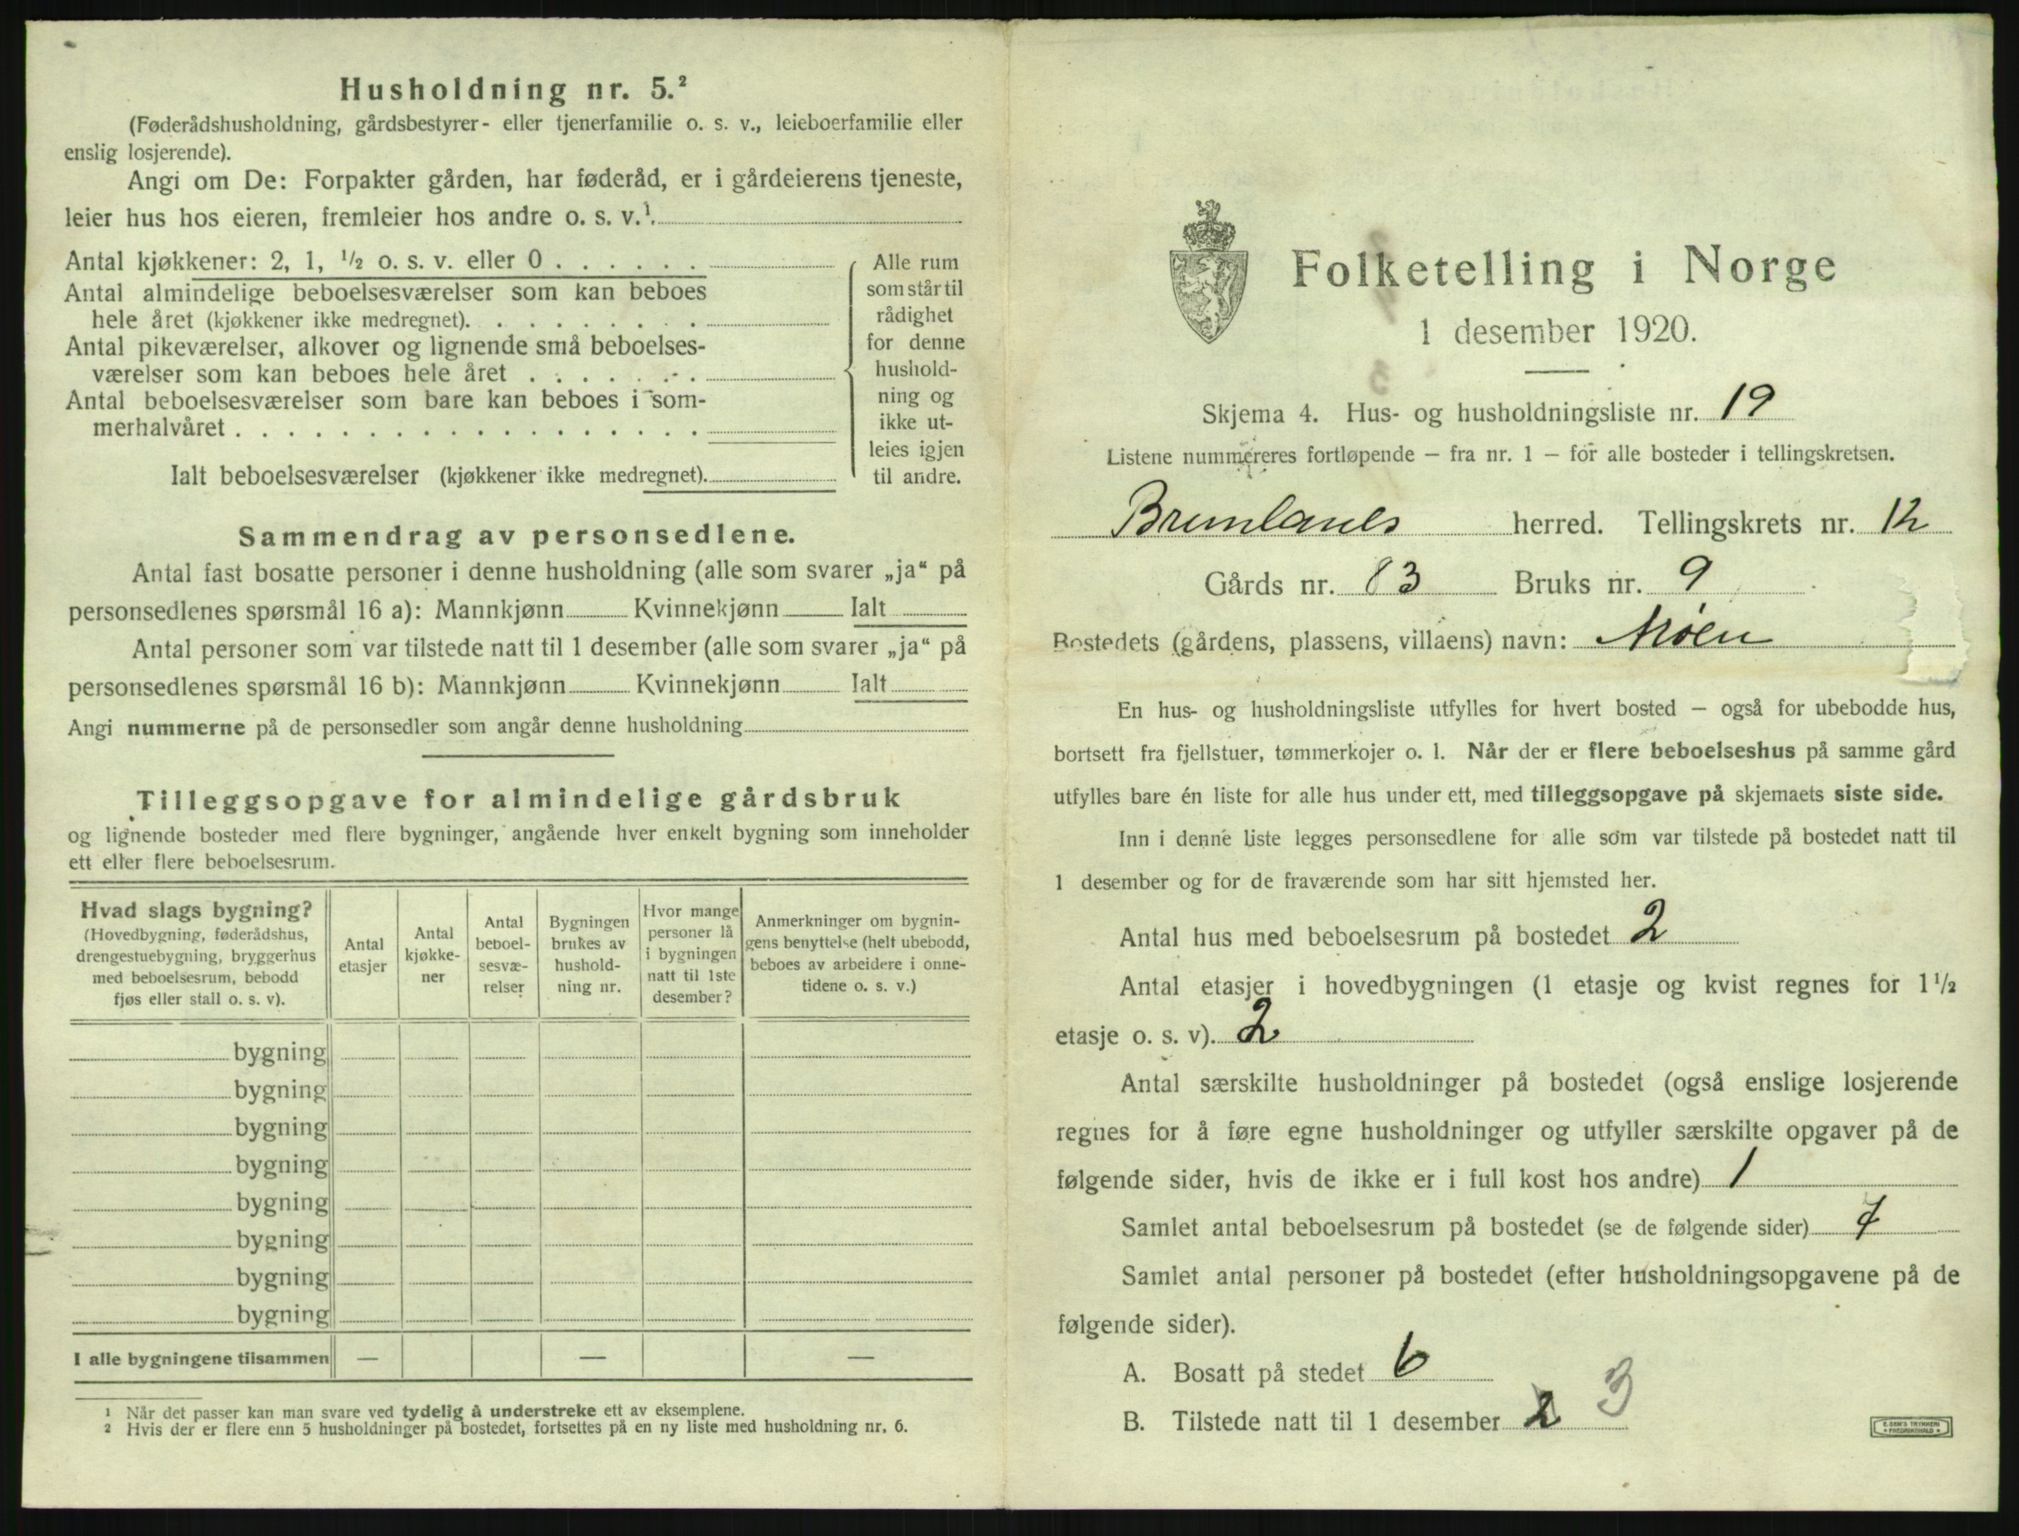 Husholdning nr. 5.²
(Føderådshusholdning, gårdsbestyrer- eller tjenerfamilie o. s. v., leieboerfamilie eller
enslig losjerende).
Angi om De: Forpakter gården, har føderåd, er i gårdeierens tjeneste,
leier hus hos eieren, fremleier hos andre o. s. v.¹.
Antal kjøkkener: 2, 1, ½ o. s. v. eller 0 . . . . . .
Antal almindelige beboelsesværelser som kan beboes
hele året (kjøkkener ikke medregnet). . . . . . . . .
Antal pikeværelser, alkover og lignende små beboelses-
værelser som kan beboes hele året . . . . . . .
Antal beboelsesværelser som bare kan beboes i som-
merhalvåret . . . . . . . . . . . . . . . . . .
Ialt beboelsesværelser (kjøkkener ikke medregnet).
Alle rum
som står til
rådighet
for denne
hushold-
ning og
ikke ut-
leies igjen
til andre.
Sammendrag av personsedlene.
Antal fast bosatte personer i denne husholdning (alle som svarer „ja“ på
personsedlenes spørsmål 16 a): Mannkjønn Kvinnekjønn Ialt
Antal personer som var tilstede natt til 1 desember (alle som svarer „ja“ på
personsedlenes spørsmål 16 b): Mannkjønn Kvinnekjønn Ialt
Angi nummerne på de personsedler som angår denne husholdning
Tilleggsopgave for almindelige gårdsbruk
og lignende bosteder med flere bygninger, angående hver enkelt bygning som inneholder
ett eller flere beboelsesrum.
Hvad slags bygning?
(Hovedbygning, føderådshus,
drengestuebygning, bryggerhus
med beboelsesrum, bebodd
fjøs eller stall o. s. v).
Antal
etasjer
Antal
kjøkke-
ner
Antal
beboel-
sesvæ-
relser
Bygningen
brukes av
hushold-
ning nr.
Hvor mange
personer lå
i bygningen
natt til 1ste
desember?
Anmerkninger om bygnin-
gens benyttelse (helt ubebodd,
beboes av arbeidere i onne-
tidene o. s. v.)
bygning
bygning
bygning
bygning
bygning
bygning
bygning
bygning
I alle bygningene tilsammen — — —
¹ Når det passer kan man svare ved tydelig å understreke ett av eksemplene.
² Hvis der er flere enn 5 husholdninger på bostedet, fortsettes på en ny liste med husholdning nr. 6.
Folketelling i Norge
1 desember 1920.
Skjema 4. Hus- og husholdningsliste nr. 19
Listene nummereres fortløpende – fra nr. 1 – for alle bosteder i tellingskretsen.
Brunlanes herred. Tellingskrets nr. 12
Gårds nr. 83 Bruks nr. 9
Bostedets (gårdens, plassens, villaens) navn: Moen
En hus- og husholdningsliste utfylles for hvert bosted – også for ubebodde hus,
bortsett fra fjellstuer, tømmerkojer o. l. Når der er flere beboelseshus på samme gård
utfylles bare én liste for alle hus under ett, med tilleggsopgave på skjemaets siste side.
Inn i denne liste legges personsedlene for alle som var tilstede på bostedet natt til
1 desember og for de fraværende som har sitt hjemsted her.
Antal hus med beboelsesrum på bostedet 2
Antal etasjer i hovedbygningen (1 etasje og kvist regnes for 1½
etasje o. s. v). 2
Antal særskilte husholdninger på bostedet (også enslige losjerende
regnes for å føre egne husholdninger og utfyller særskilte opgaver på de
følgende sider, hvis de ikke er i full kost hos andre) 1
Samlet antal beboelsesrum på bostedet (se de følgende sider) 7
Samlet antal personer på bostedet (efter husholdningsopgavene på de
følgende sider).
A. Bosatt på stedet 6
B. Tilstede natt til 1 desember 2 3
E. SEM'S TRYKKERI
FREDRIKSHALD